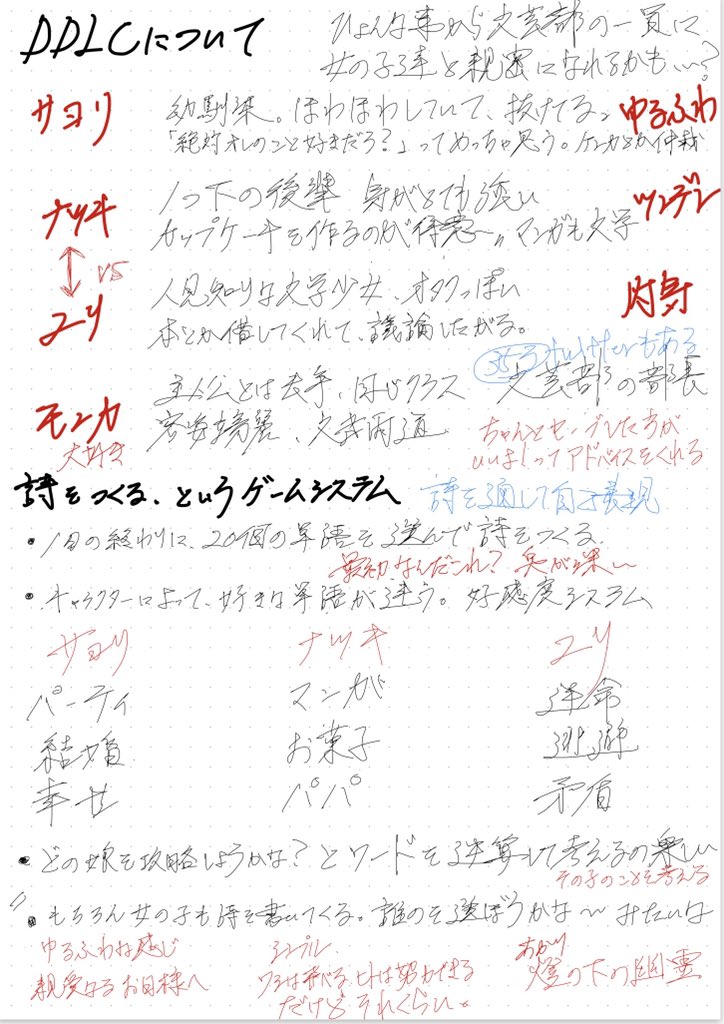 DDLCについて
ひょんな事から文芸部の一員に
女の子達と親密になれるかも…?
サヨリ
幼馴染。ほわほわしていて、抜けてる。
ゆるふわ
「絶対オレのこと好きだろ?」ってめっちゃ思う。ケンカとか仲裁
ナツキ
1つ下の後輩 身がとても強い
ツンデレ
カップケーキを作るのが得意〃マンガも文学
VS
ユリ
人見知りな文学少女、オタクっぽい
本とか借してくれて、議論したがる。
twitterもある
モニカ
大好き
主人公とは去年、同じクラス
文芸部の部長
容姿綺麗、文武両道
ちゃんとセーブした方が
いいよ!ってアドバイスをくれる
詩をつくる、というゲームシステム
詩を通して自己表現
・1日の終わりに、20個の単語を選んで詩をつくる。
最初なんだこれ?
・キャラクターによって、好きな単語が違う。好感度システム
サヨリ ナツキ ユリ
パーティ マンガ 運命
結婚 お菓子
幸せ パパ 矛盾
・どの娘を攻略しようかな?とワードを逆算して考えるの楽しい
その子のことを考える
・もちろん女の子も詩を書いてくる。誰のを選ぼうかな〜みたいな
ゆるふわな感じ
親愛なるお日様へ
シンプル
ワシは飛べる、ヒトは努力できる
だけどそれくらい。
あかり
燈の下の幽霊